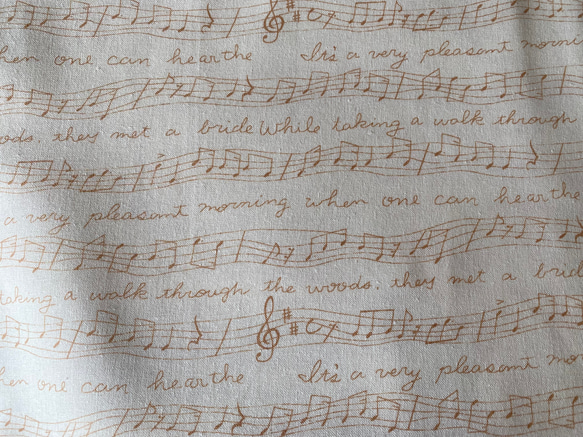 hen one can hearthe It's a very pleasant morni
oods. they met a bride While taking a walk through
a very pleasant morning when one can hearthe
taking a walk through the woods. they met a brid
hen one can hearthe It's a very pleasant mo